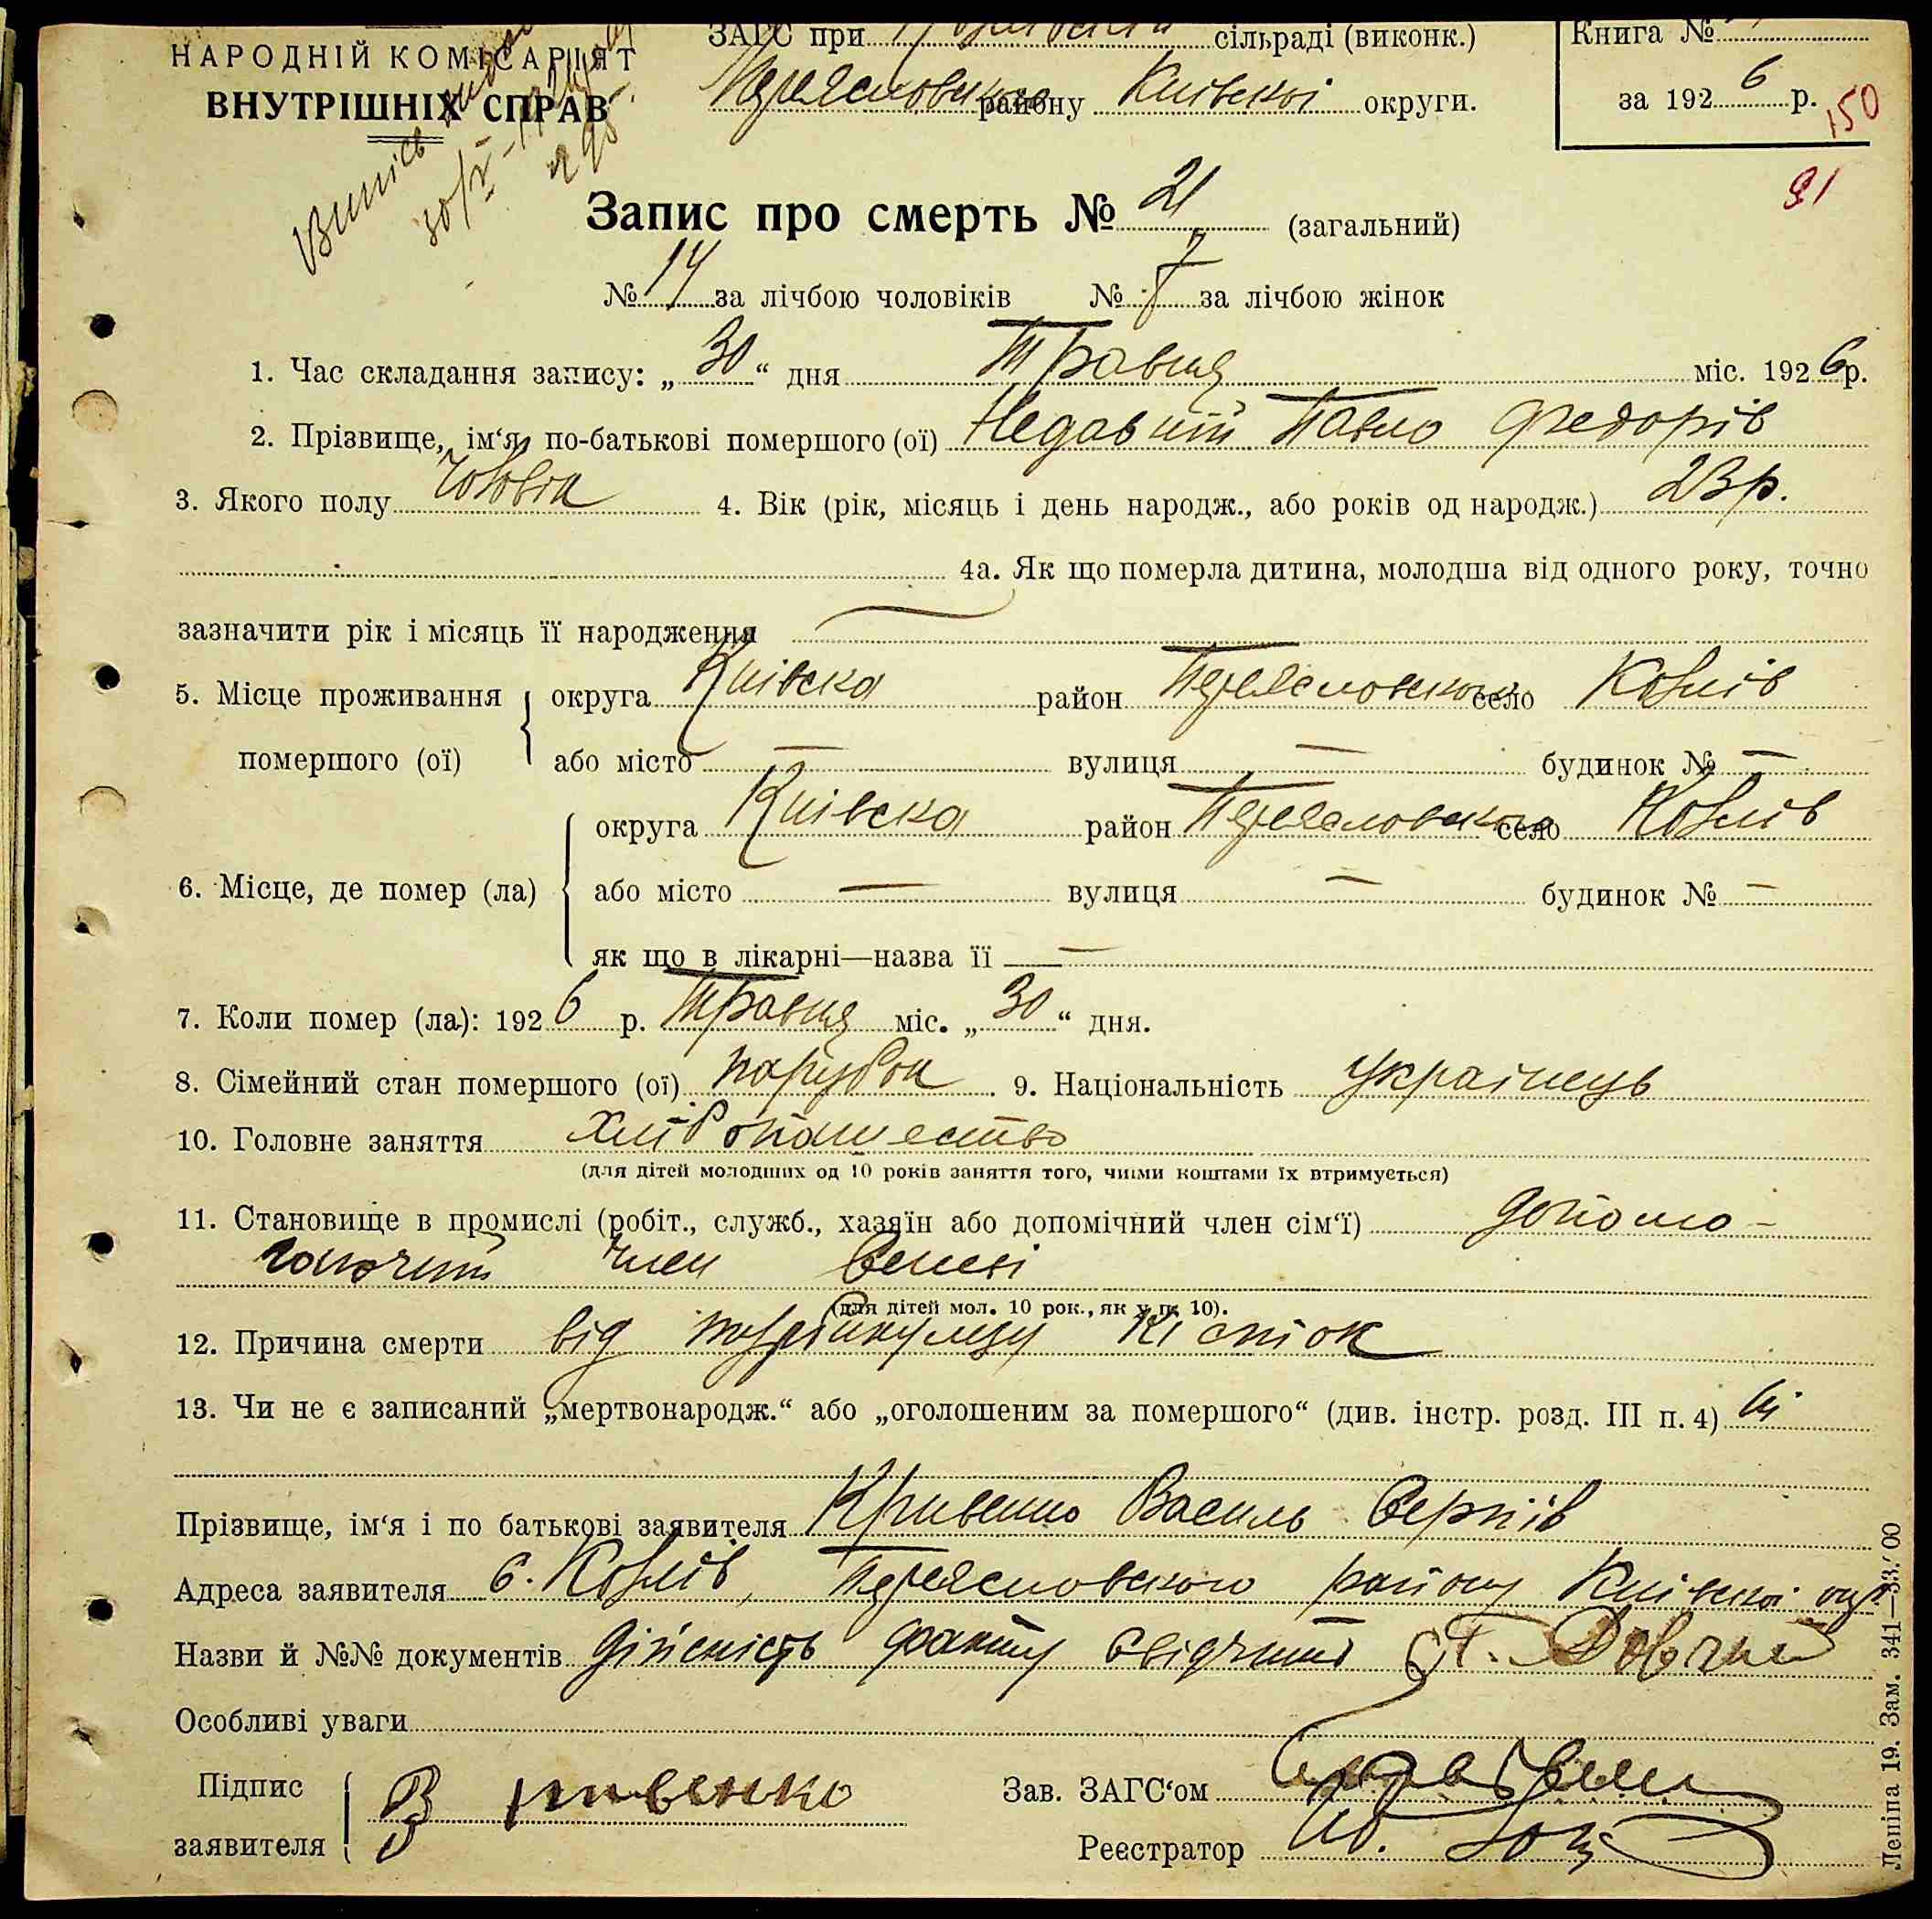 НАРОДНІЙ КОМІСАРІЯТ
ВНУТРІШНІХ СПРАВ
Випись
30/V - 1926
ЗАГС при сільраді (виконк.)
Переяславського району Київської округи.
Книга №
за 1926 р.
150
91
Запис про смерть № 21 (загальний)
№ 14 за лічбою чоловіків № 7 за лічбою жінок
1. Час складання запису: „30“ дня Травня міс. 1926 р.
2. Прізвище, ім‘я, по-батькові помершого (ої) Недавній Павло Федорів
3. Якого полу чоловік 4. Вік (рік, місяць і день народж., або років од народж.) 23 р.
4а. Як що померла дитина, молодша від одного року, точно
зазначити рік і місяць її народження —
5. Місце проживання округа Київска район Переясловського село Козлів
помершого (ої) або місто — вулиця — будинок № —
округа Київска район Переясловського село Козлів
6. Місце, де помер (ла) або місто — вулиця — будинок № —
як що в лікарні—назва її —
7. Коли помер (ла): 1926 р. Травня міс. „30“ дня.
8. Сімейний стан помершого (ої) парубок 9. Національність Українець
10. Головне заняття хліборобство
(для дітей молодших од 10 років заняття того, чиїми коштами їх втримується)
11. Становище в промислі (робіт., служб., хазяїн або допомічний член сім‘ї) допомо-
гаючий член семьі
(для дітей мол. 10 рок., як у п. 10).
12. Причина смерти від туберкульозу кісток
13. Чи не є записаний „мертвонародж.“ або „оголошеним за помершого“ (див. інстр. розд. III п. 4) ні
Прізвище, ім‘я і по батькові заявителя Кривенко Василь Сергіїв
Адреса заявителя с. Козлів, Переясловського району Київскоі окр
Назви й №№ документів Дійсність факту свідчить
Особливі уваги
Підпис
заявителя В Кривенко
Зав. ЗАГС‘ом
Реєстратор
19. Зам. 341